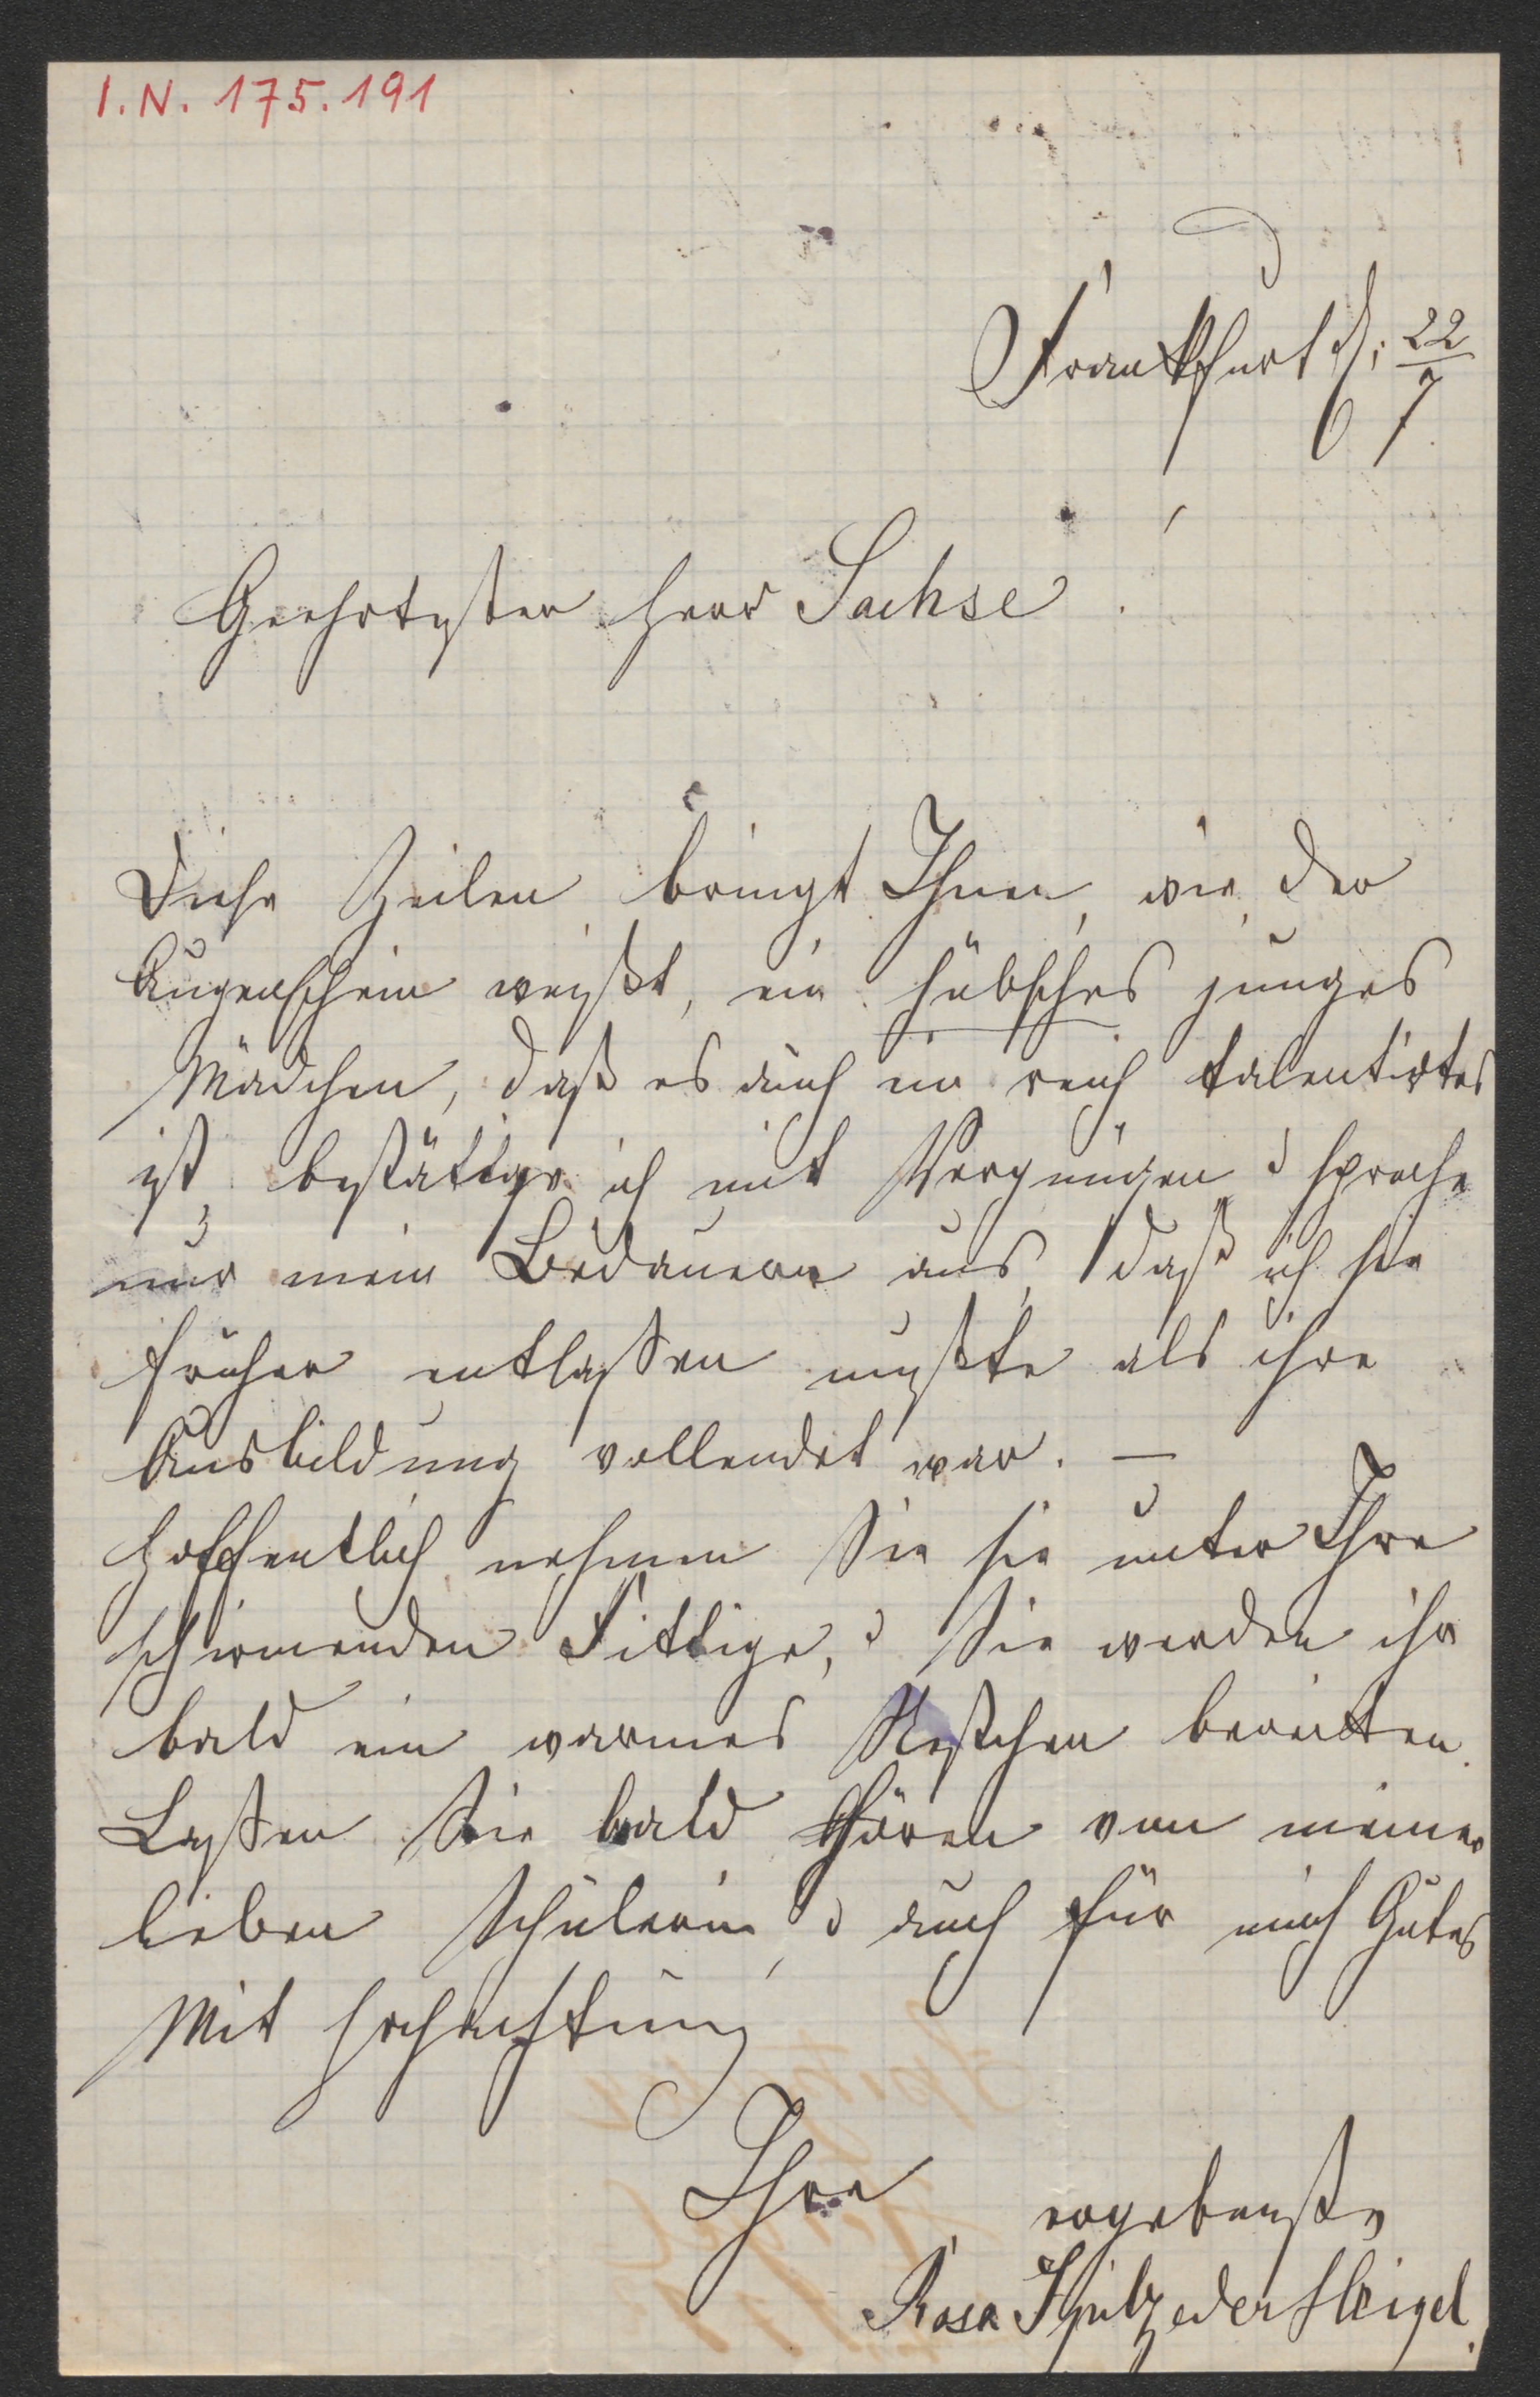 I.N. 175.191
Frankfurt d. 22/7
Geehrtester Herr Sachse
Diese Zeilen bringt Ihnen, wie der
Augenschein weißt, ein hübsches junges
Mädchen, daß es auch ein reich talentirtes
ist, bestättige ich mit Vergnügen u spreche
nur mein Bedauern aus, daß ich sie
früher entlaßen mußte als ihre
Ausbildung vollendet war. —
Hoffentlich nehmen Sie sie unter Ihre
schirmenden Fittige, u Sie werden ihr
bald ein warmes Nestchen bereiten.
Laßen Sie bald hören von meiner
lieben Schülerin, u auch für mich Gutes
Mit Hochachtung
Ihre
ergebenste
Rosa Spitzeder Heigel.